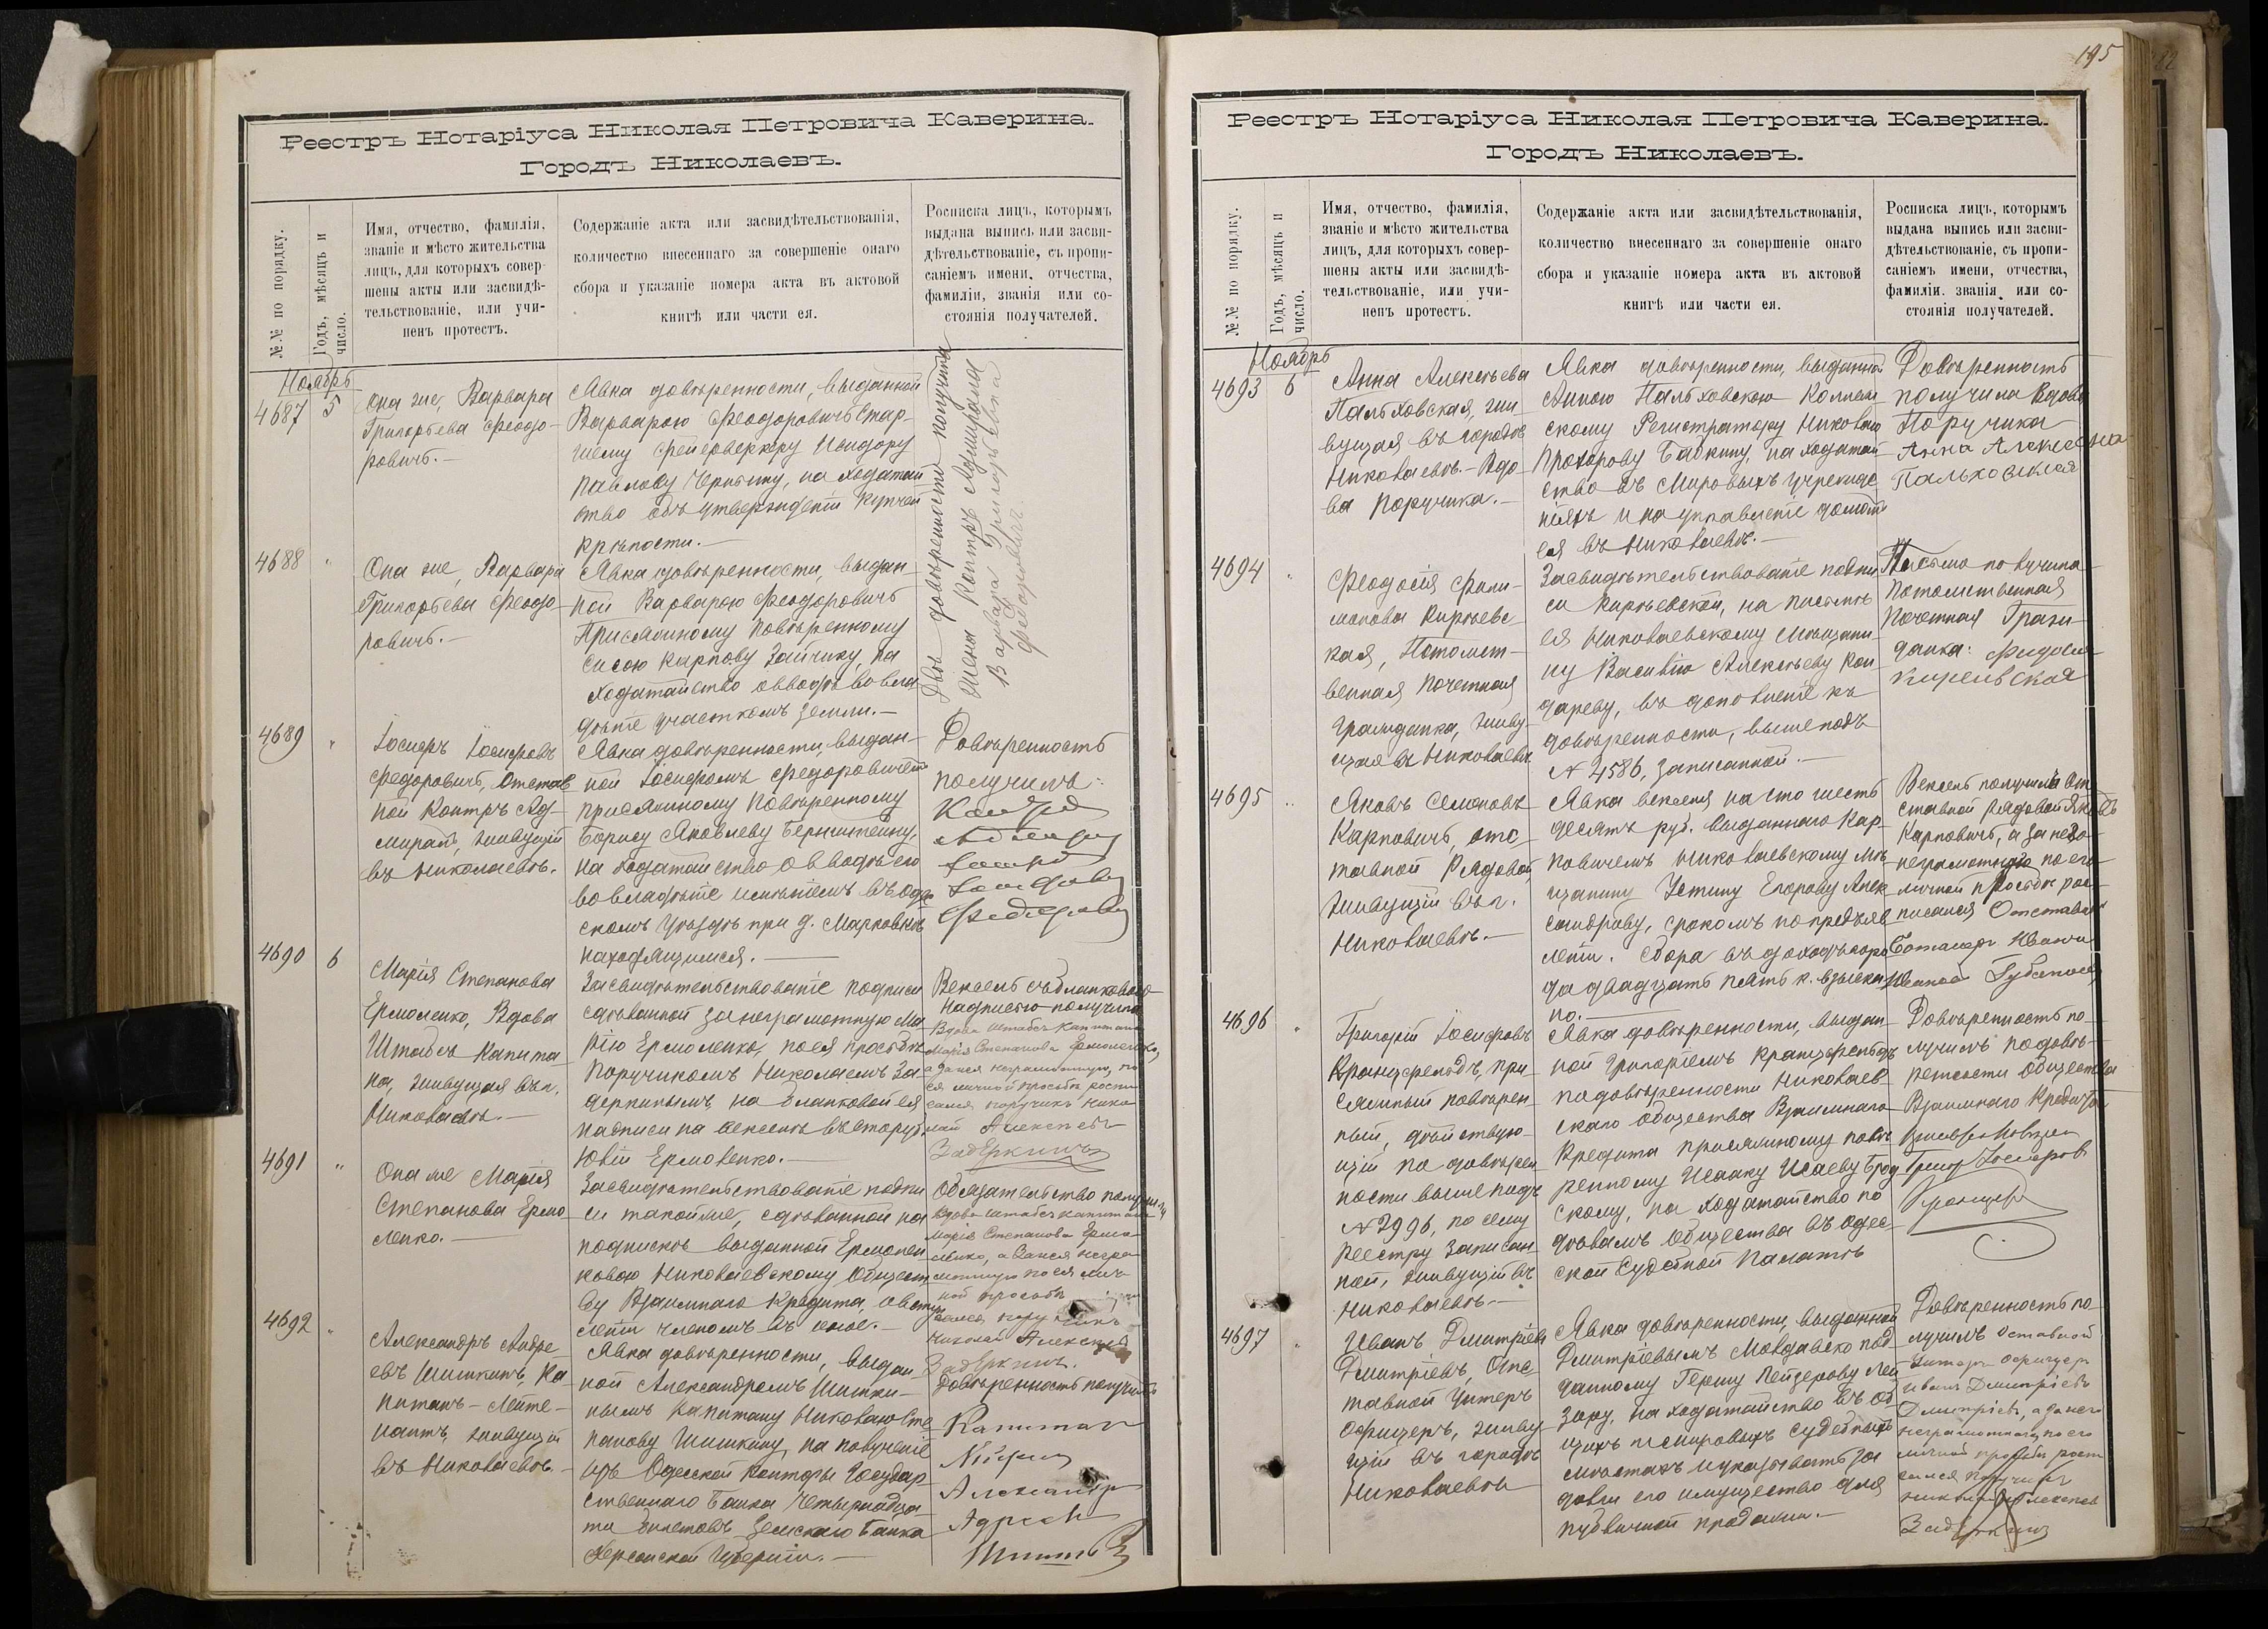 Реестръ Нотаріуса Николая Петровича Каверина.
Городъ Николаевъ.
№№ по порядку.
Годъ, мѣсяцъ и
число.
Имя, отчество, фамилія,
званіе и мѣсто жительства
лицъ, для которыхъ совер-
шены акты или засвидѣ-
тельствованіе, или учи-
ненъ протестъ.
Содержаніе акта или засвидѣтельствованія,
количество внесеннаго за совершеніе онаго
сбора и указаніе номера акта въ актовой
книгѣ или части ея.
Росписка лицъ, которымъ
выдана выпись или засви-
дѣтельствованіе, съ пропи-
саніемъ имени, отчества,
фамиліи, званія или со-
стоянія получателей.
Ноябрь
4687 5
Она же, Варвара
Григорьева Феодо-
ровичъ.-
Явка довѣренности, выданной
Варварою Феодоровичъ Стар-
шему Фейерверкеру Исидору
Павлову Чернышу, на ходатай
ство объ утвержденіи купчей
крѣпости.-
Двѣ довѣренности получила
Жена Контръ Адмирала
Варвара Григорьевна
Феодоровичъ
4688 "
Она же, Варвара
Григорьева Феодо-
ровичъ.-
Явка довѣренности, выдан-
ной Варварою Феодоровичъ
Присяжному Повѣренному
Сысою Карпову Зайчику, на
ходатайство о вводѣ во вла
дѣніе участкомъ земли.-
4689 "
Іосифъ Іосифовъ
Федоровичъ, Отстав
ной Контръ Ад-
миралъ, живущій
въ Николаевѣ.
Явка довѣренности, выдан-
ной Іосифомъ Федоровичемъ
присяжному Повѣренному
Борису Яковлеву Бернштейну,
на ходатайство о вводѣ его
во владѣніе имѣніемъ въ Одес
скомъ уѣздѣ при д. Марковкѣ
находящимся.-
Довѣренность
получилъ:
Контръ
Адмиралъ
Іосифъ
Іосифовъ
Федоровичъ
4690 6
Марія Степанова
Ермоленко, Вдова
Штабсъ Капита
на, живущая въ г.
Николаевѣ.-
Засвидѣтельствованіе подписи
сдѣланной за неграмотную Ма
рію Ермоленко, по ея просьбѣ
Поручикомъ Николаемъ За-
деркинымъ, на бланковой ея
надписи на векселѣ въ сторублей
Ювій Ермоленко.-
Вексель съ бланковою
надписью получила
Вдова Штабсъ Капитана
Марія Степанова Ермоленко,
а за нея неграмотную, по
ея личной просьбѣ распи
сался поручикъ Нико
лай Алексѣевъ
Задеркинъ
4691 "
Она же Марія
Степанова Ермо
ленко.-
Засвидѣтельствованіе подпи
си таковой же, сдѣланной на
подпискѣ выданной Ермолен
ковою Николаевскому Общест
ву Взаимнаго Кредита, о вступ
леніи членомъ въ оное.-
Обязательство получила
Вдова штабсъ капитана
Марія Степанова Ермо
ленко, а за нея негра
мотную по ея лич
ной просьбѣ
сался поручикъ
Николай Алексѣевъ
Задеркинъ.
4692 "
Александръ Андре-
евъ Шишкинъ, Ка
питанъ-Лейте-
нантъ, живущій
въ Николаевѣ.-
Явка довѣренности, выдан-
ной Александромъ Шишки-
нымъ Капитану Николаю Сте
панову Шишкину, на полученіе
изъ Одесской Конторы Государ-
ственнаго Банка четырнадца
ти билетовъ Земскаго Банка
Херсонской Губерніи.-
Довѣренность получилъ
Капитан
Александр
Андреев
Шишкин
195
Реестръ Нотаріуса Николая Петровича Каверина.
Городъ Николаевъ.
№№ по порядку.
Годъ, мѣсяцъ и
число.
Имя, отчество, фамилія,
званіе и мѣсто жительства
лицъ, для которыхъ совер-
шены акты или засвидѣ-
тельствованіе, или учи-
ненъ протестъ.
Содержаніе акта или засвидѣтельствованія,
количество внесеннаго за совершеніе онаго
сбора и указаніе номера акта въ актовой
книгѣ или части ея.
Росписка лицъ, которымъ
выдана выпись или засви-
дѣтельствованіе, съ пропи-
саніемъ имени, отчества,
фамиліи. званія или со-
стоянія получателей.
Ноябрь
4693 6
Анна Алексѣева
Пальховская, жи-
вущая въ городѣ
Николаевѣ.-Вдо-
ва Поручика.-
Явка довѣренности, выданной
Анною Пальховскою Коллеж
скому Регистратору Николаю
Прохорову Бабкину, на ходатай-
ство въ Мировыхъ учрежде
ніяхъ и на управленіе домомъ
ея въ Николаевѣ.-
Довѣренность
получила Вдова
Поручика
Анна Алексеевна
Пальховская
4694 "
Феодосія Фили-
монова Кирьевс
кая, Потомст-
венная Почетная
Гражданка, живу-
щая въ Николаевѣ
Засвидѣтельствованіе подпи
си Кирьевской, на письмѣ
ея Николаевскому Мѣщани-
ну Василію Алексѣеву Кон-
дареву, въ дополненіе къ
довѣренности, выше подъ
№ 4586, записанной.-
Письмо получила
Потомственная
Почетная Граж-
данка: Федосия
Киреевская
4695 "
Яковъ Семеновъ
Карповичъ, отс-
тавной Рядовой,
живущій въ г.
Николаевѣ.-
Явка векселя на сто шесть
десятъ руб. выданнаго Кар-
повичемъ Николаевскому мѣ
щанину Устину Егорову Алек
сандрову, срокомъ по предъяв
леніи. Сбора въ доходъ горо
да двадцать пять к. взыска
но.-
Вексель получилъ От
ставной рядовой Яковъ
Карповичъ, а за него
неграмотнаго по его
личной просьбѣ рос-
писался Отставной
Боцманъ Иванъ
Ивановъ
4696 "
Григорій Іосифовъ
Кранцфельдъ, при
сяжный повѣрен-
ный, дѣйствую-
щій по довѣрен
ности выше подъ
№ 2996, по сему
реестру записан-
ной, живущій въ
Николаевѣ.-
Явка довѣренности, выдан
ной Григоріемъ Кранцфельдъ
по довѣренности Николаев-
скаго Общества Взаимнаго
Кредита присяжному повѣ
ренному Исааку Исаеву Брод
скому, на ходатайство по
дѣламъ Общества въ Одес-
ской Судебной Палатѣ
Довѣренность по
лучилъ по довѣ-
ренности Общества
Взаимнаго Кредита
Присяжный Повѣрен
Григ Іосифовъ
Кранцф
4697 "
Иванъ Дмитріевъ
Дмитріевъ, Отс-
тавной Унтеръ
офицеръ, живу
щій въ городѣ
Николаевѣ
Явка довѣренности, выданной
Дмитріевымъ Молдавско под
данному Гершу Лейзерову Лей
зеру, на ходатайство въ об
щихъ и мировыхъ судебныхъ
мѣстахъ и указывать за
давш его имущество для
публичной продажи.-
Довѣренность по-
лучилъ Оставной
Унтеръ Офицеръ
Иванъ Дмитріевъ
Дмитріевъ, а за него
неграмотнаго по его
личной просьбѣ распи
сался Поручикъ
Николай Алексѣев
Задеркинъ